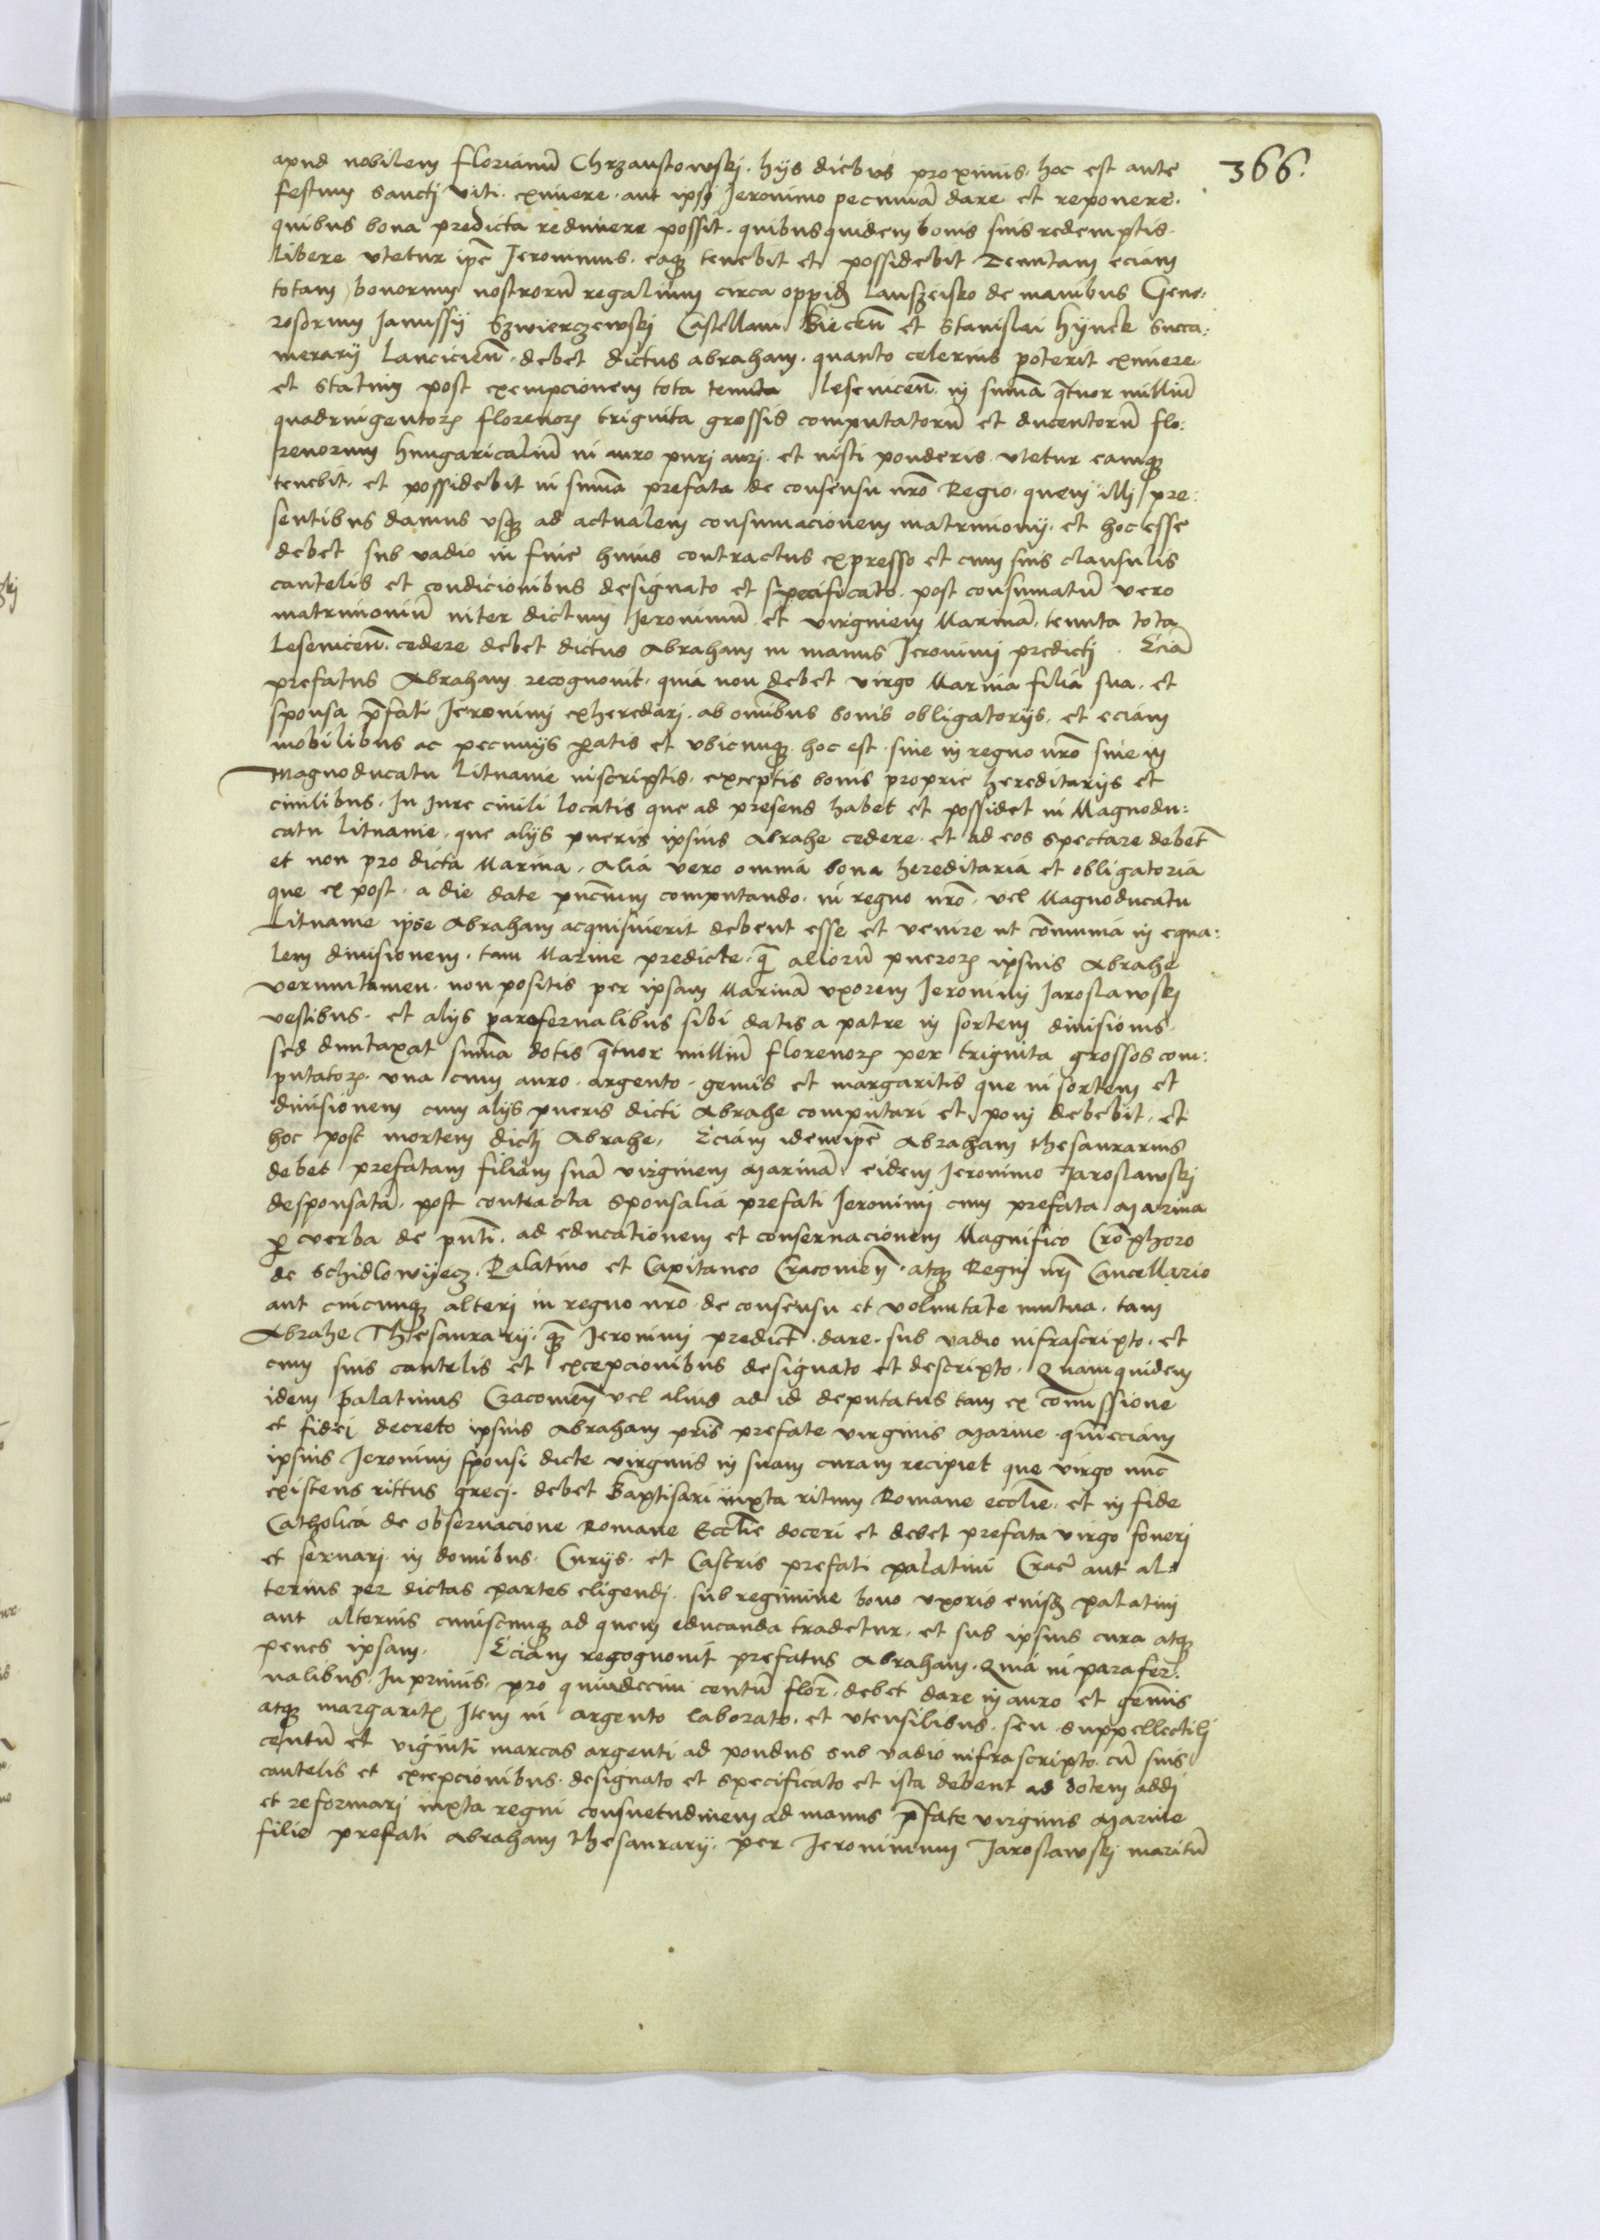 366.
apud nobilem Florianū Chrzanstowskj. hijs diebus proximis. hoc est ante
festum Sanctj Viti. eximere. aut ipsi Jeronimo pecuniā dare et reponere.
quibus bona predicta redimere possit. quibusquidem bonis suis redemptis
libere vtetur ip̄e Jeronimus. eaq3 tenebit et possidebit Tenutam eciam
totam bonorum nostrorū regalium circa oppid3 de manibus Gene:
rosorum Janussij Szwierczewskj Castellani Biecēn et Stanislai Hijncck Succa:
merarij Lanciciēn. debet dictus abraham. quanto celerius poterit eximere
et statim post exempcionem tota tenuta Leseniceñ. in summa q̄tuor milliū
quadringentorꝫ florenorꝫ triginta grossis computatorū et ducentorū flo:
renorum hungaricaliū in auro purj aurj. et iusti ponderis vtetur eamq3
tenebit. et possidebit in summa prefata de consensu nr̄o Regio. quem illj pre:
sentibus damus vsq3 ad actualem consumacionem matrimonij. et hoc esse
debet sub vadio in fine huius contractus expresso et cum suis clausulis
cautelis et condicionibus designato et specificato. post consumatū vero
matrimoniū inter dictum Jeronimū et virginem Marinā, tenuta tota
Leseniceñ. cedere debet dictus Abraham in manus Jeronimj predictj. Eciā
prefatus Abraham recognouit. quia non debet virgo Marina filia sua. et
sponsa p̄fati Jeronimj exheredarj. ab omībus bonis obligatorijs. et eciam
mobilibus ac pecunijs ꝑatis et vbicunq3. hoc est siue in regno nr̄o siue in
Magnoducatu Lituanie inscriptis. exceptis bonis proprie hereditarijs et
ciuilibus. In Jure ciuili locatis que ad presens habet et possidet in Magnodu:
catu Lituanie. que alijs pueris ipsius Abrahe cedere. et ad eos spectare debēt
et non pro dicta Marina. Alia vero omnia bona hereditaria et obligatoria
que ex post. a die date pn̄cium computando. in regno nr̄o. vel Magnoducatu
Lituanie ipse Abraham acquisiuerit debent esse et venire ut cōmunia in equa:
lem diuisionem. tam Marine predicte. q̄ aliorū puerorꝫ ipsius Abrahe
verumtamen. non positis per ipsam Marinā vxorem Jeronimj Jaroslawskj
vestibus. et alijs parafernalibus sibi datis a patre in sortem diuisionis.
sed duntaxat sum̄a dotis q̄tuor milliū florenorꝫ per triginta grossos com:
putatorꝫ. vna cum auro. argento. gemis et margaritis que in sortem et
diuisionem cum alijs pueris dicti Abrahe computari et ponj debebit. et
hoc post mortem dictj Abrahe. Eciam idem ip̄e Abraham thesaurarius
debet prefatam filiam suā virginem Marinā. eidem Jeronimo Jaroslawskj
desponsatā. post contracta sponsalia prefati Jeronimj cum prefata Marina
ꝑ verba de pn̄ti. ad educationem et conseruacionem Magnifico Crōphoro
de Schidlowijecz. Palatino et Capitaneo Cracouieñ. atq3 Regnj nr̄j Cancellario
aut cuicunq3 alterj in regno nr̄o de consensu et voluntate mutua. tam
Abrahe Thesaurarij. q3 Jeronimj predict. dare. sub vadio infrascripto. et
cum suis cautelis et excepcionibus designato et descripto. Quamquidem
idem palatinus Cracouieñ vel alius ad id deputatus tam ex cōmissione
et fidej decreto ipsius Abraham pr̄is prefate virginis Marine. quam eciam
ipsius Jeronimj sponsi dicte virginis in suam curam recipiet que virgo nūc
existens rittus grecj. debet baptisari iuxta ritum Romane eccl̄ie. et in fide
Catholica de obseruacione Romane Eccl̄ie doceri et debet prefata virgo fouerj
et seruarj in domibus. Curijs. et Castris prefati palatini Crac̄ aut al=
terius per dictas partes eligendj. sub regimine bono vxoris eiusd3 palatini
aut alterius cuiuscunq3 ad quem educanda tradetur. et sub ipsius cura atq3
penes ipsam. Eciam regognouit prefatus Abraham. Quia in parafer:
nalibus. Inprimis. pro quindecim centū flor̄. debet dare in auro et gem̄is
atq3 margaritꝫ Item in argento laborato. et vtensilibus. seu suppellectilj
centū et viginti marcas argenti ad pondus sub vadio infrascripto. cū suis
cautelis et excepcionibus. designato et specificato et ista debent ad dotem addj
et reformarj iuxta regni consuetudinem ad manus p̄fate virginis Marine
filie prefati Abraham thesaurarij. per Jeronimum Jaroslawskj maritū